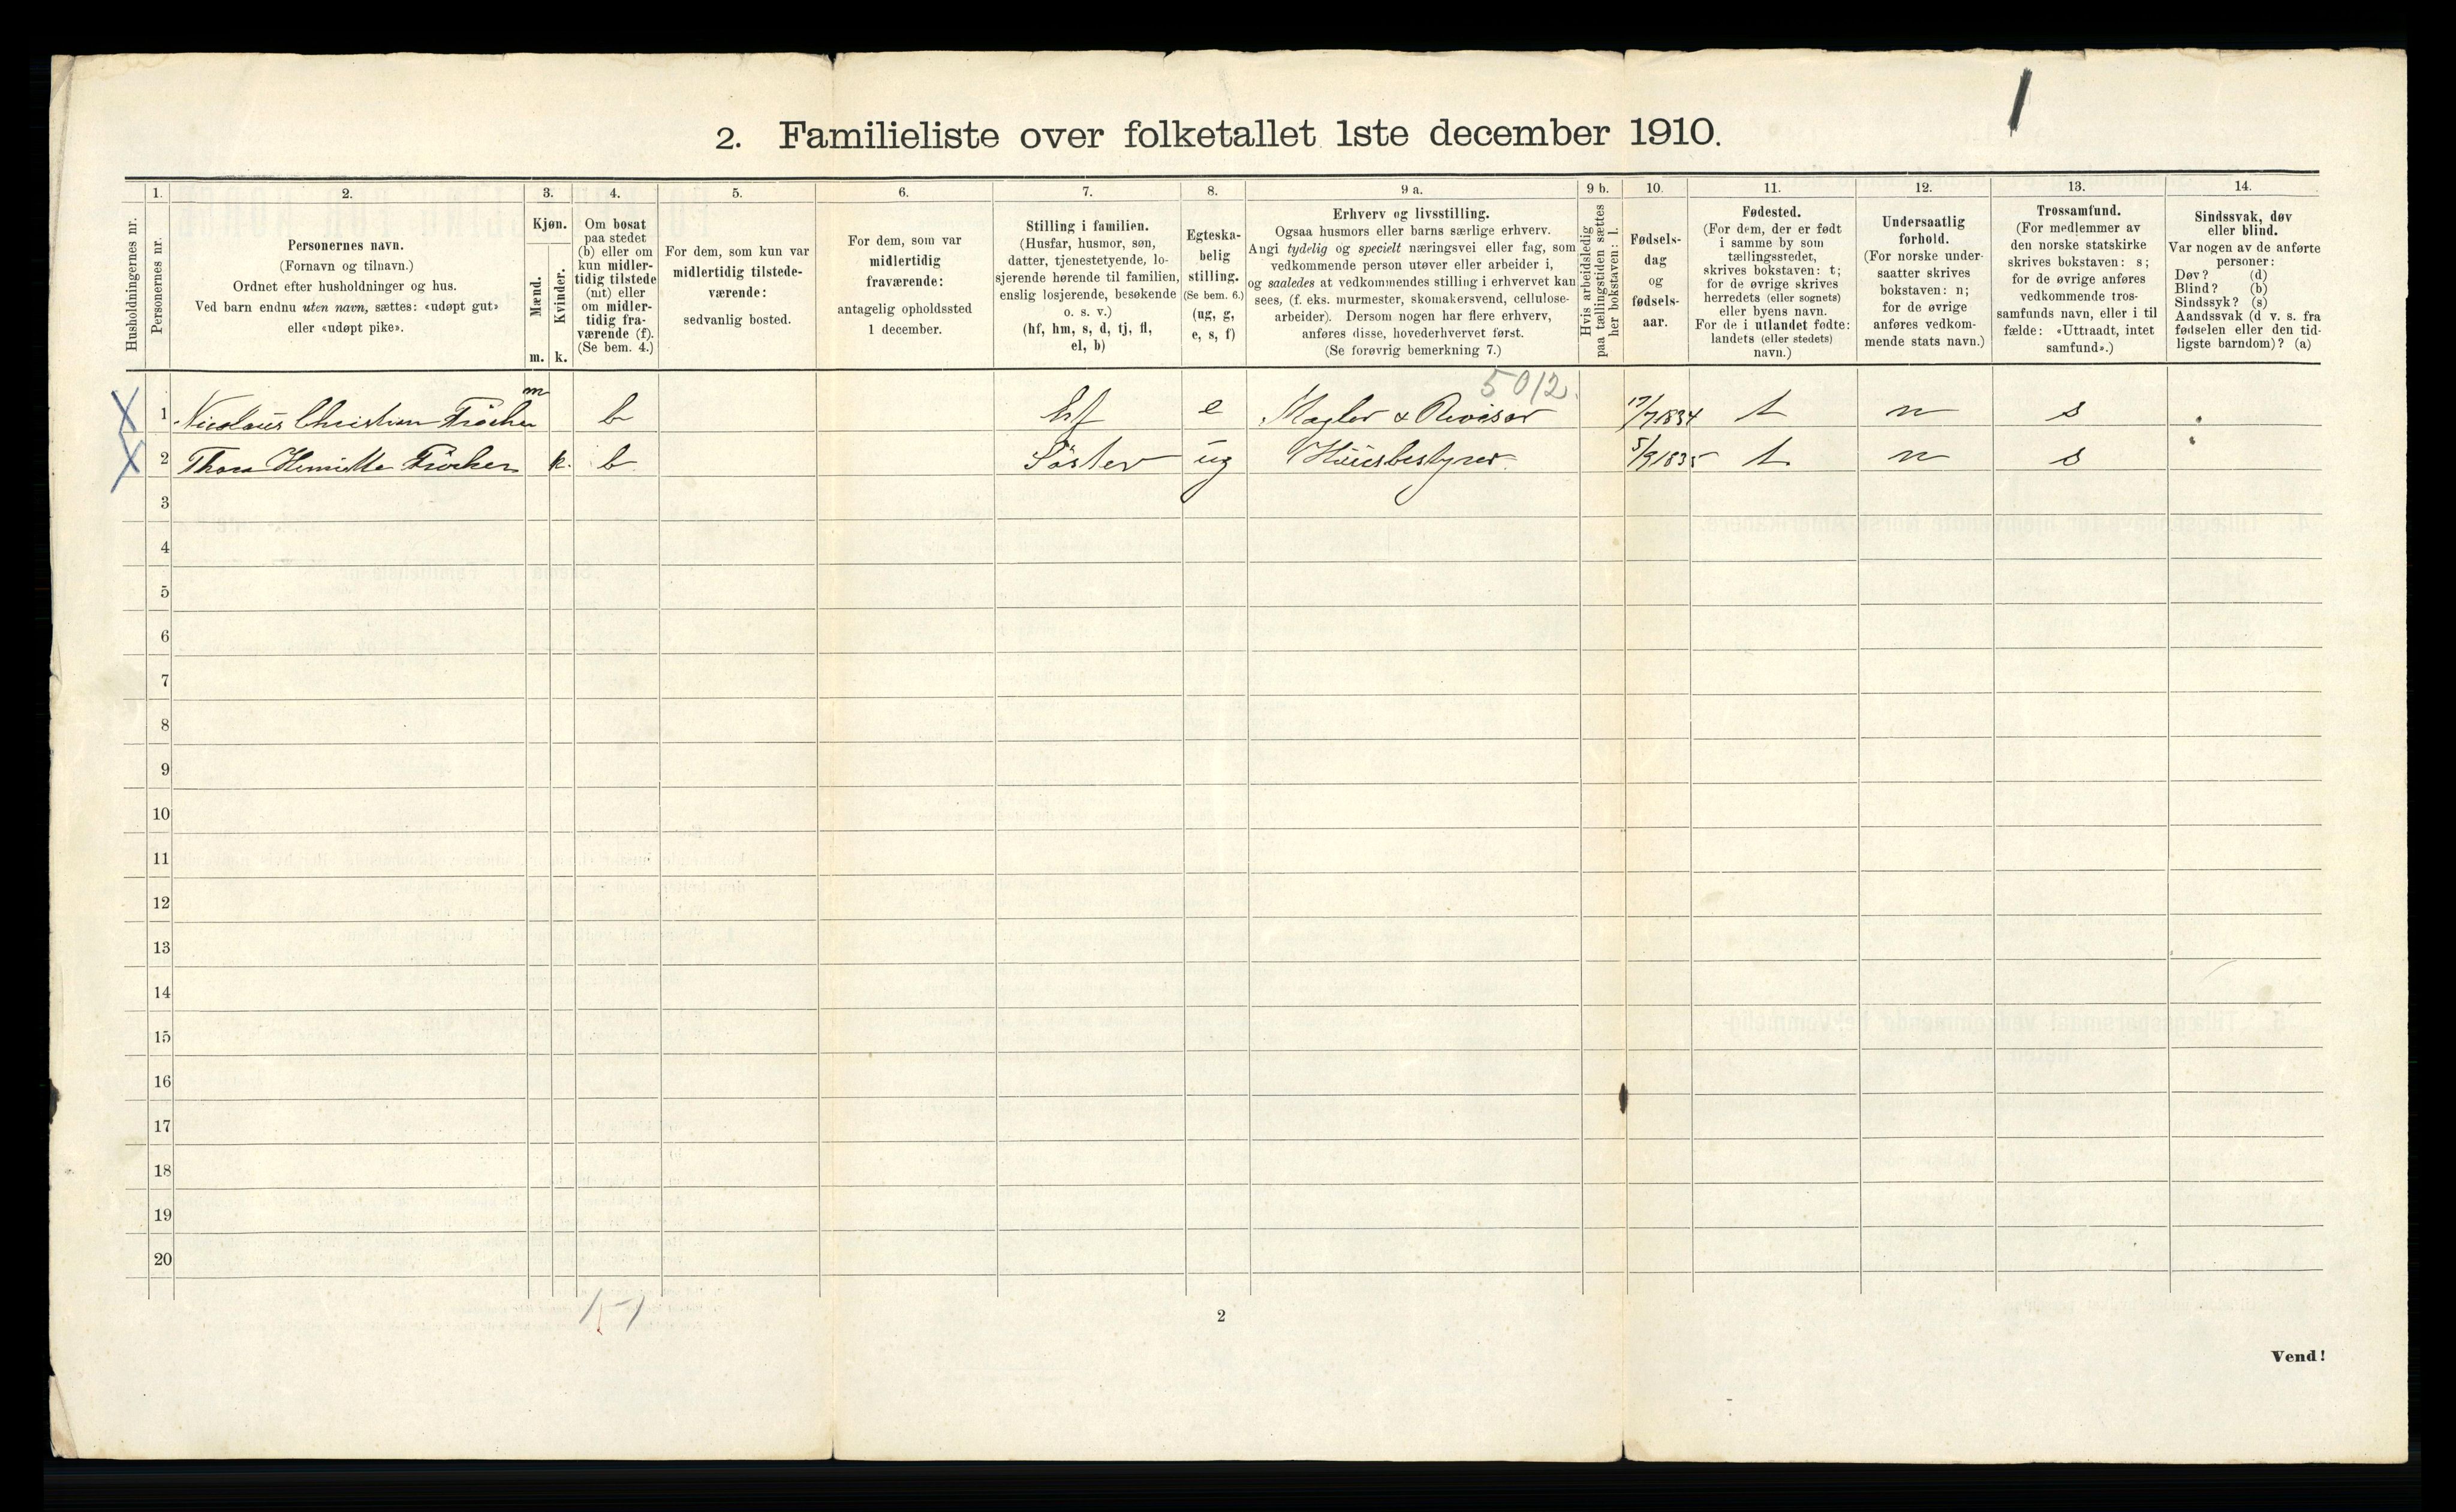 2. Familieliste over folketallet 1ste december 1910.
Husholdningernes nr.
1.
Personernes nr.
2.
Personernes navn.
(Fornavn og tilnavn.)
Ordnet efter husholdninger og hus.
Ved barn endnu uten navn, sættes: «udøpt gut»
eller «udøpt pike».
3.
Kjøn.
Mænd.
Kvinder.
m.
k.
4.
Om bosat
paa stedet
(b) eller om
kun midler-
tidig tilstede
(mt) eller
om midler-
tidig fra-
værende (f).
(Se bem. 4.)
5.
For dem, som kun var
midlertidig tilstede-
værende:
sedvanlig bosted.
6.
For dem, som var
midlertidig
fraværende:
antagelig opholdssted
1 december.
7.
Stilling i familien.
(Husfar, husmor, søn,
datter, tjenestetyende, lo-
sjerende hørende til familien,
enslig losjerende, besøkende
o. s. v.)
(hf, hm, s, d, tj, fl,
el, b)
8.
Egteska-
belig
stilling.
(Se bem. 6.)
(ug, g,
e, s, f)
9 a.
Erhverv og livsstilling.
Ogsaa husmors eller barns særlige erhverv.
Angi tydelig og specielt næringsvei eller fag, som
vedkommende person utøver eller arbeider i,
og saaledes at vedkommendes stilling i erhvervet kan
sees, (f. eks. murmester, skomakersvend, cellulose-
arbeider). Dersom nogen har flere erhverv,
anføres disse, hovederhvervet først.
(Se forøvrig bemerkning 7.)
9 b.
Hvis arbeidsledig
paa tællingstiden sættes
her bokstaven: l.
10.
Fødsels-
dag
og
fødsels-
aar.
11.
Fødested.
(For dem, der er født
i samme by som
tællingsstedet,
skrives bokstaven: t;
for de øvrige skrives
herredets (eller sognets)
eller byens navn.
For de i utlandet fødte:
landets (eller stedets)
navn.)
12.
Undersaatlig
forhold.
(For norske under-
saatter skrives
bokstaven: n;
for de øvrige
anføres vedkom-
mende stats navn.)
13.
Trossamfund.
(For medlemmer av
den norske statskirke
skrives bokstaven: s;
for de øvrige anføres
vedkommende tros-
samfunds navn, eller i til
fælde: «Uttraadt, intet
samfund».)
14.
Sindssvak, døv
eller blind.
Var nogen av de anførte
personer:
Døv? (d)
Blind? (b)
Sindssyk? (s)
Aandssvak (d v. s. fra
fødselen eller den tid-
ligste barndom)? (a)
5012
1 Nicolaus Christian m b hf e Mægler & Revisor 17/7 1834 t n s
2 Thora Henriette k. b Søster ug Huusbestyrer 5/9 1835 t n s
3
4
5
6
7
8
9
10
11
12
13
14
15
16
17
18
19
20
1-1
2
Vend!